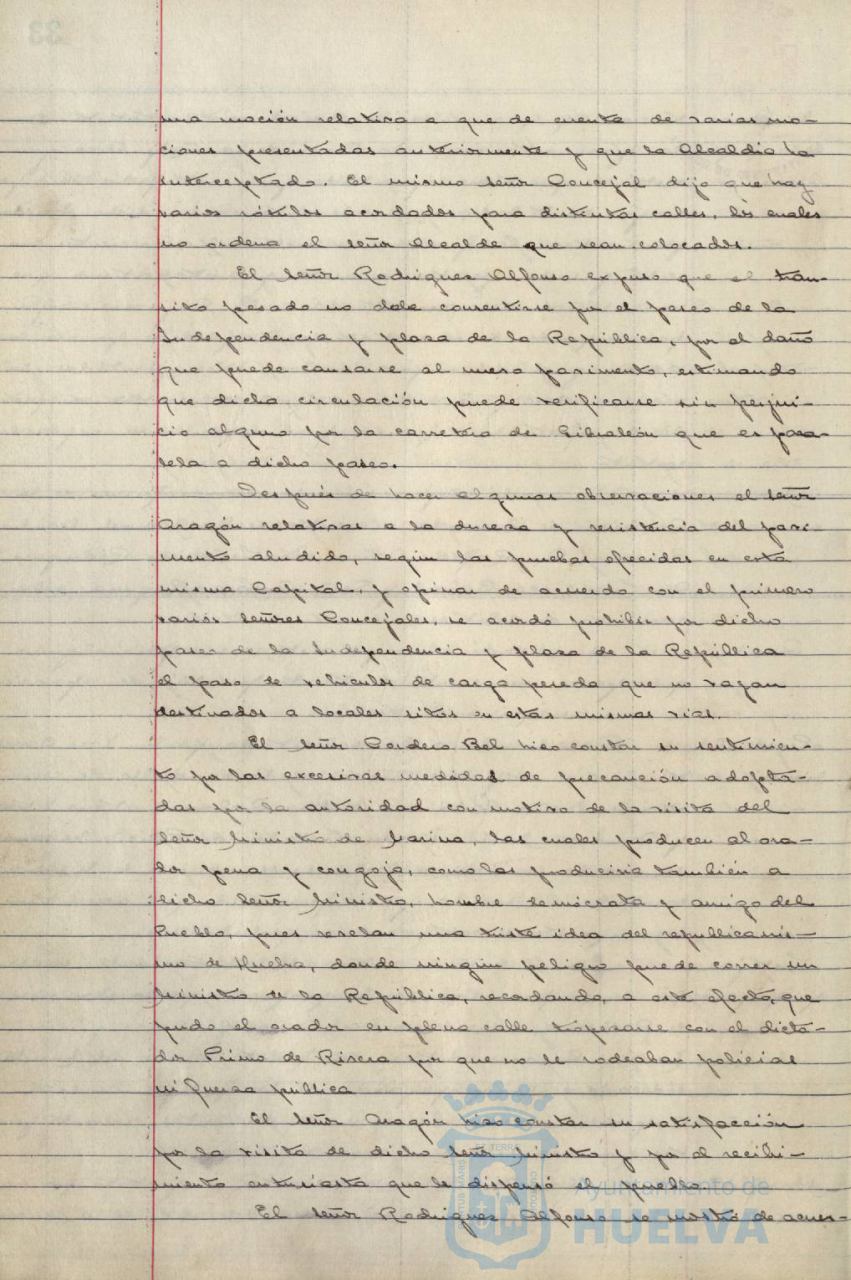 una moción relativa a que de cuenta de varias mo-
ciones presentadas anteriormente y que la Alcaldia ha
interceptado. El mismo señor Concejal dijo que hay
varios rótulos acordados para distintas calles, los cuales
no ordena el señor Alcalde que sean colocados.
El señor Rodriguez Alfonso expuso que el trán-
sito pesado no debe consentirse por el paseo de la
Independencia y plaza de la República, por el daño
que puede causarse al nuevo pavimento, estimando
que dicha circulación puede verificarse sin perjui-
cio alguno por la carretera de Gibraleón que es para-
lela a dicho paseo.
Después de hacer algunas observaciones el señor
Aragón relativas a la dureza y resistencia del pavi-
mento aludido, según las pruebas ofrecidas en esta
misma Capital, y opinar de acuerdo con el primero
varios señores Concejales, se acordó prohibir por dicho
paseo de la Independencia y plaza de la República
el paso de vehiculos de carga pesada que no vayan
destinados a locales sitos en estas mismas vias.
El señor Cordero Bel hizo constar su sentimien-
to por las excesivas medidas de precaución adopta-
das por la autoridad con motivo de la visita del
señor Ministro de Marina, las cuales producen al ora-
dor pena y congoja, como las produciria también a
dicho señor Ministro, hombre demócrata y amigo del
Pueblo, pues revelan una triste idea del republicanis-
mo de Huelva, donde ningún peligro puede correr un
Ministro de la República, recordando, a este efecto, que
pudo el orador en plena calle tropezarse con el dicta-
dor Primo de Rivera por que no le rodeaban policias
ni fuerza pública
El señor Aragón hizo constar su satisfacción
por la visita de dicho señor Ministro y por el recibi-
miento entusiasta que le dispensó el pueblo
El señor Rodriguez Alfonso se mostró de acuer-
Ayuntamiento de
HUELVA